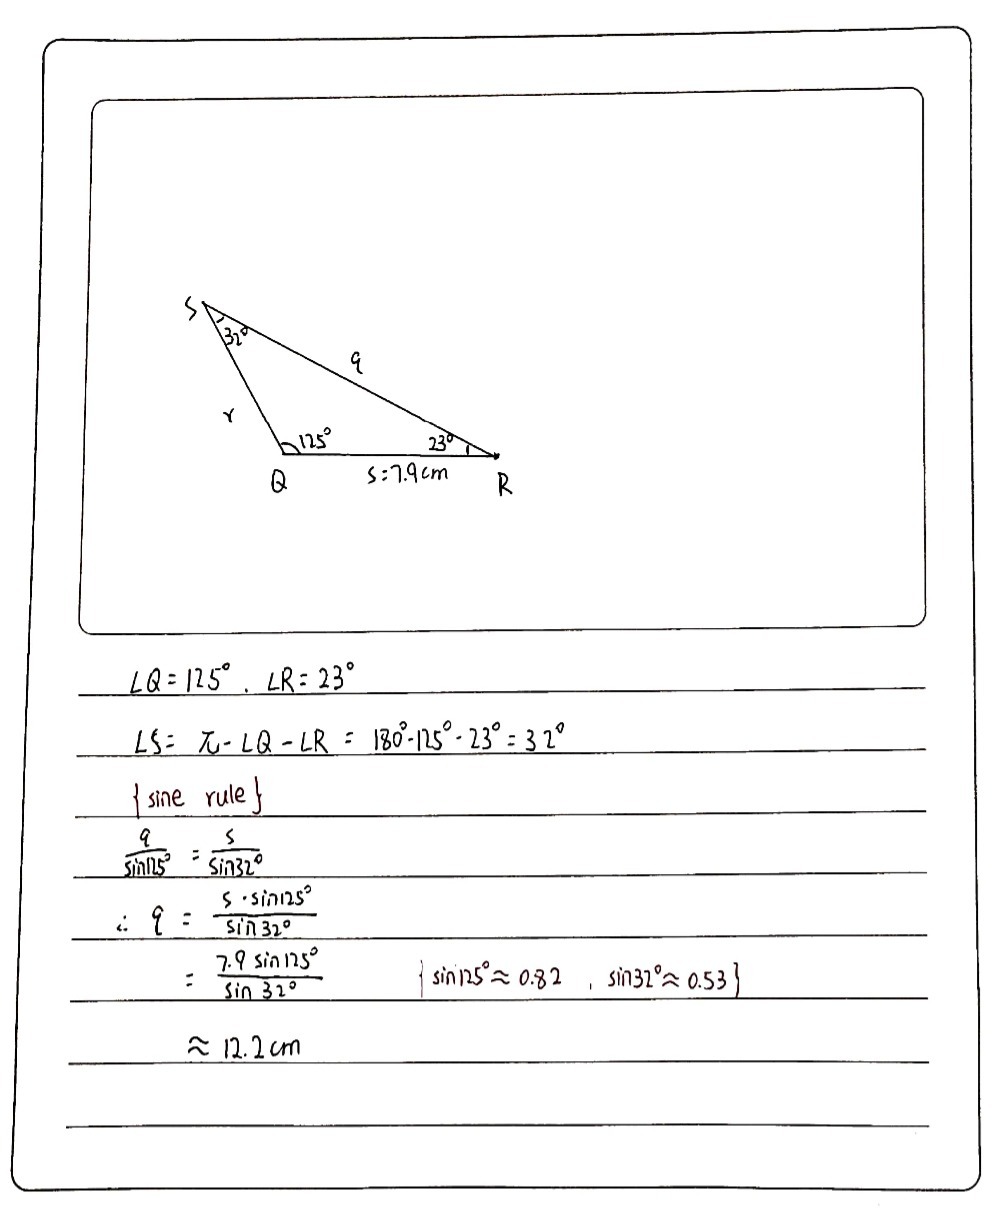 S
32°
q
r
125°
23°
Q
s=7.9cm
R
∠Q=125°, ∠R=23°
∠S= π-∠Q-∠R = 180°-125°-23°=32°
{sine rule}
q/sin125° = s/sin32°
∴ q = s·sin125°/sin32°
= 7.9 sin125°/sin 32° {sin125°≈0.82, sin32°≈0.53}
≈ 12.2cm